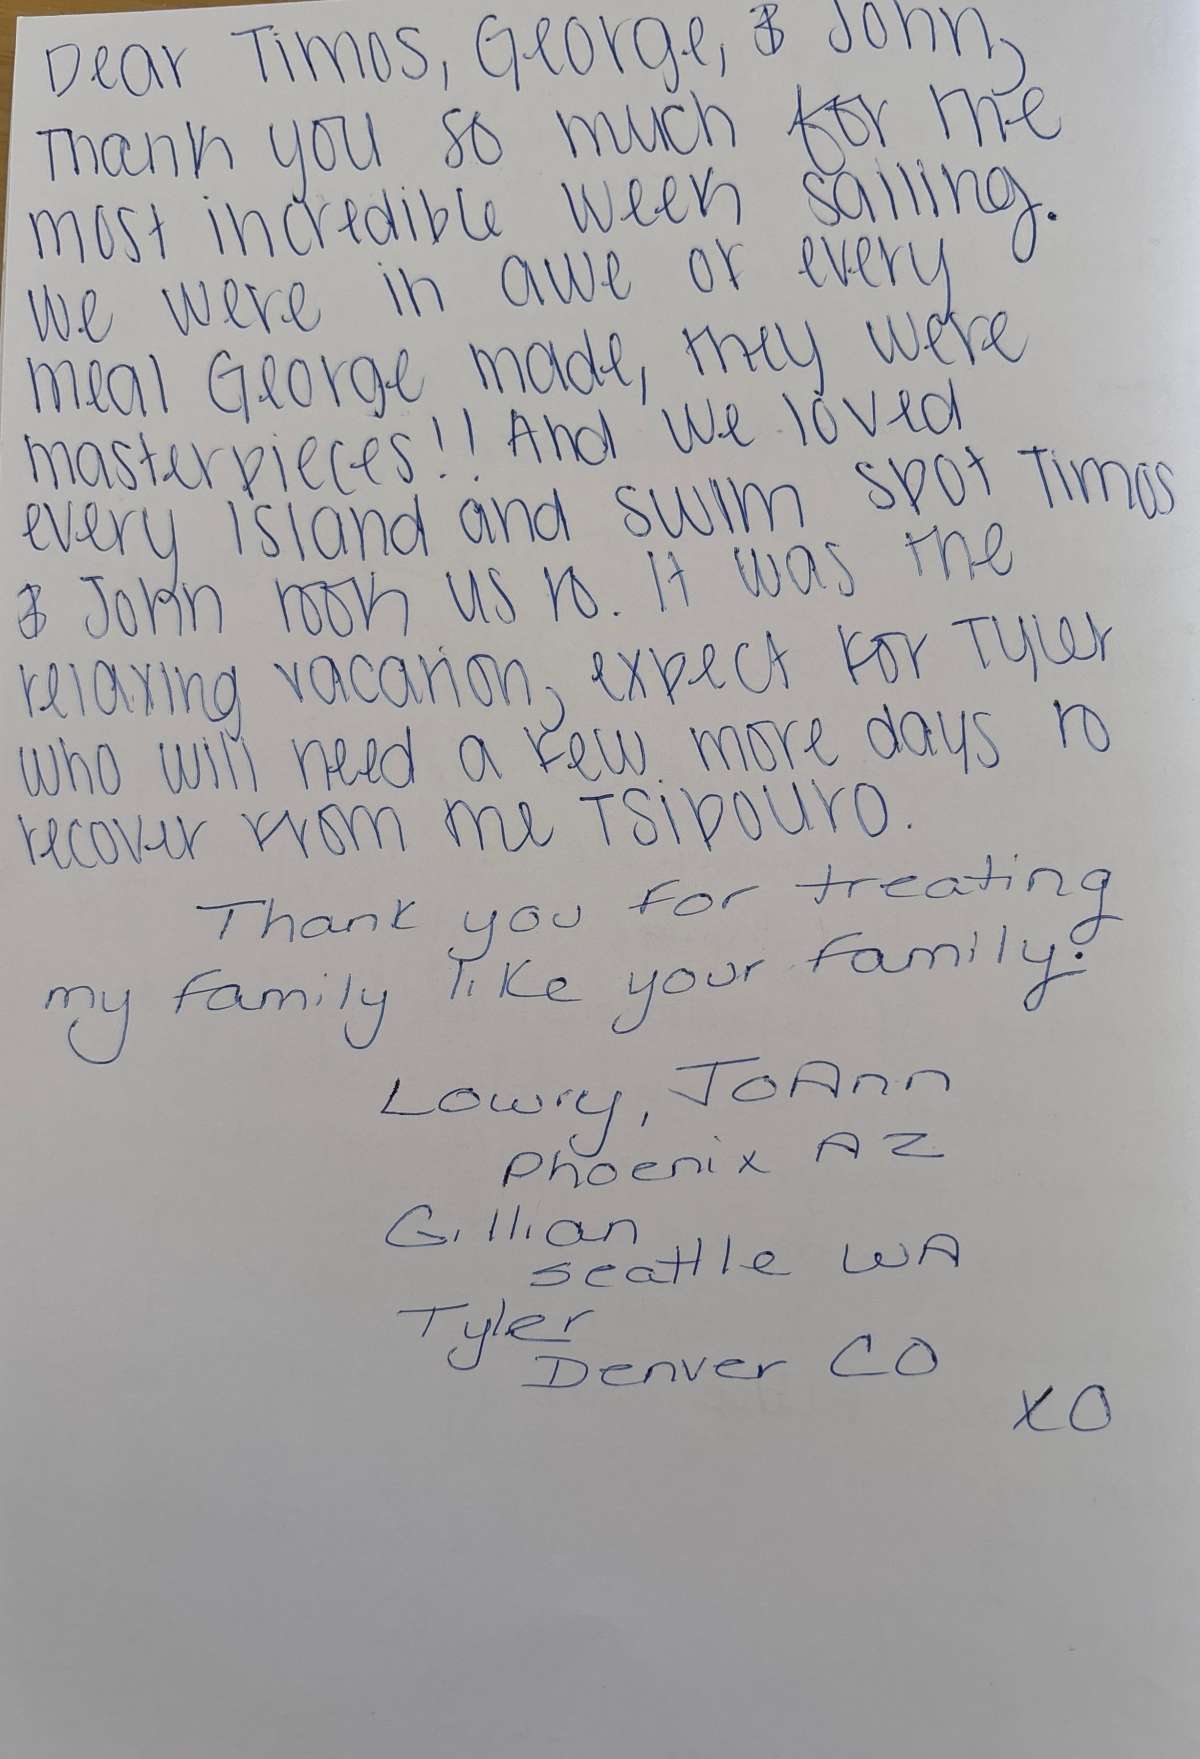 Dear Timos, George, & John,
Thank you so much for the
most incredible week sailing.
We were in awe of every
meal George made, they were
masterpieces!! And we loved
every island and swim spot Timos
& John took us to. It was the
relaxing vacation, expect for Tyler
who will need a few more days to
recover from the Tsipouro.
Thank you for treating
my family like your family.
Lowry, JoAnn
Phoenix AZ
Gillian
Seattle WA
Tyler
Denver CO
XO